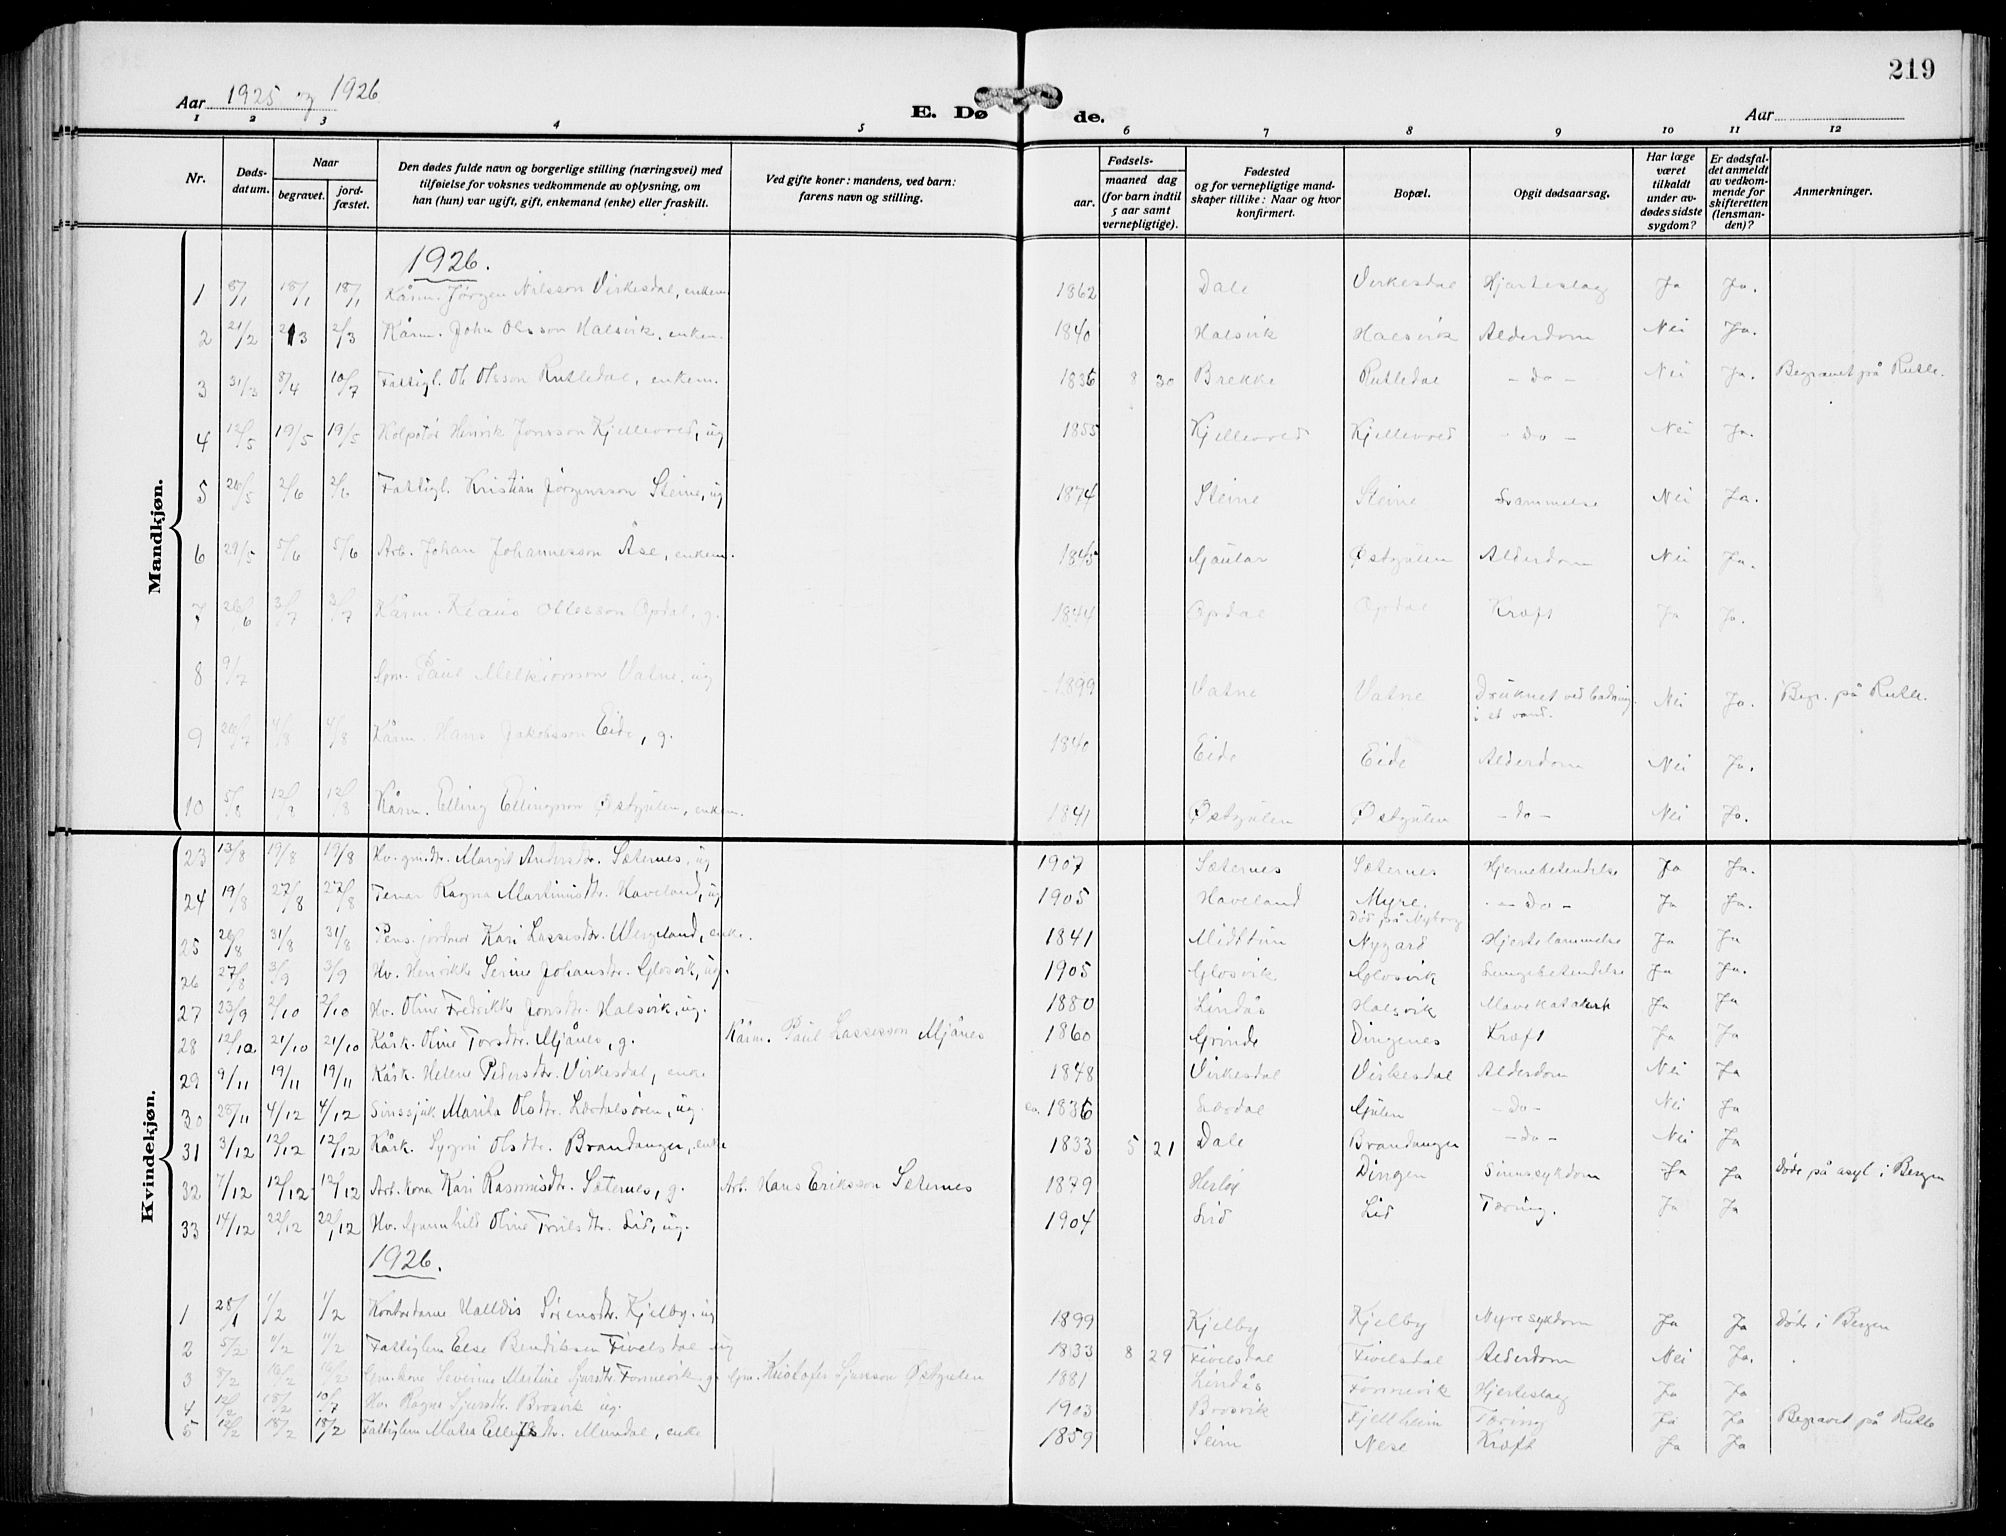 219
Aar 1925 og 1926
E. Døde.
Aar
1 2 3 4 5 6 7 8 9 10 11 12
Nr.
Døds-datum.
Naar
begravet.
jord-fæstet.
Den dødes fulde navn og borgerlige stilling (næringsvei) med
tilføielse for voksnes vedkommende av oplysning, om
han (hun) var ugift, gift, enkemand (enke) eller fraskilt.
Ved gifte koner: mandens, ved barn:
farens navn og stilling.
Fødsels-
aar.
maaned dag
(for barn indtil
5 aar samt
vernepligtige).
Fødested
og for vernepligtige mand-
skaper tillike: Naar og hvor
konfirmert.
Bopæl.
Opgit dødsaarsag.
Har læge
været
tilkaldt
under av-
dødes sidste
sygdom?
Er dødsfal-
det anmeldt
av vedkom-
mende for
skifteretten
(lensman-
den)?
Anmerkninger.
Mandkjøn.
1926.
1 8/1 18/1 18/1 Kårm. Jørgen Nilsson Virkesdal, enkem. 1862 Dale Virkesdal Hjerteslag Ja Ja.
2 21/2 2/3 2/3 Kårm. John Olsson Halsvik, enkem. 1840 Halsvik Halsvik Alderdom Nei Ja.
3 31/3 8/4 10/7 Fattigl. Ole Olsson Rutledal, enkem. 1836 8 30 Brekke Rutledal - do - Nei Ja. Begravet på Rutle.
4 12/5 19/5 19/5 Kolportør Henrik Jonsson Kjellevold, ug 1855 Kjellevold Kjellevold - do - Nei Ja.
5 26/5 2/6 2/6 Fattigl. Kristian Jørgensson Steine, ug 1874 Steine Steine Nei Ja.
6 29/5 5/6 5/6 Arb. Johan Johannesson Åse, enkem. 1845 Gaular Østgulen Alderdom Nei Ja.
7 26/6 3/7 3/7 Kårm. Klaus Ollesson Opdal, g. 1844 Opdal Opdal Kræft Ja Ja.
8 9/7 Gm. Paul Melkiorsson Vatne, ug 1899 Vatne Vatne Druknet ved badning i et vand. Nei Ja. Begr. på Rutle.
9 4/8 4/8 Kårm. Hans Jakobsson Eide, g. 1840 Eide Eide Alderdom Nei Ja.
10 5/8 12/8 12/8 Kårm. Elling Ellingsson Østgulen, enkem. 1841 Østgulen Østgulen - do - Nei Ja.
Kvindekjøn.
23 13/8 19/8 19/8 Hv. gm.dtr. Margit Andersdtr. Sæternes, ug 1907 Sæternes Sæternes Hjernebetendelse Ja Ja.
24 19/8 27/8 27/8 Ragna Martinusdtr. Haveland, ug 1905 Haveland Myre. Død på Nyborg - Do - Ja Ja.
25 26/8 31/8 31/8 Pens. jordmor Kari Lassesdtr. Wergeland, enke. 1841 Midttun Nygard Hjertelammelse Ja Ja
26 27/8 3/9 3/9 Hv. Henrikke Serine Johansdtr. Glosvik, ug. 1905 Glosvik Glosvik Lungebetendelse Ja Ja.
27 23/9 2/10 2/10 Hv. Oline Fredrikke Jonsdtr. Halsvik, ug. 1880 Lindås Halsvik Mavekatarrh Ja Ja
28 12/10 21/10 21/10 Kårk. Oline Torsdtr. Mjånes, g. Kårm. Paul Lassesson Mjånes 1860 Grinde Dingenes Kræft Ja Ja
29 9/11 19/11 19/11 Kårk. Helene Pedersdtr. Virkesdal, enke 1848 Virkesdal Virkesdal Alderdom Nei Ja
30 28/11 4/12 4/12 Sinssjuk Marita Olsdtr. Lærdalsøren, ug. ca. 1836 Lærdal Gulen - Do - Nei Ja
31 3/12 12/12 12/12 Kårk. Sygni Olsdtr. Brandanger, enke 1833 5 21 Dale Brandanger - do - Nei Ja
32 7/12 12/12 12/12 Arb. kona Kari Rasmusdtr. Sæternes, g. Arb. Hans Eriksson Sæternes 1879 Herløy Dingen Sinnssykdom Ja Ja Døde på asyl i Bergen
33 14/12 22/12 22/12 Hv. Gunnhild Oline Trulsdtr. Lid, ug. 1904 Lid Lid Tæring. Ja Ja
1926.
1 28/1 1/2 1/2 Kontordame Halldis Sørensdtr. Kjelby, ug 1899 Kjelby Kjelby Nyresykdom Ja Ja Døde i Bergen
2 5/2 11/2 11/2 Fattiglem Else Bendiksen Fivelsdal ug 1833 8 29 Fivelsdal Fivelsdal Alderdom Nei Ja.
3 8/2 16/2 16/2 Gm.kone Severine Martine Sjursdtr. Fonnevik, g. Gm. Kristofer Sjursson Østgulen 1881 Lindås Fonnevik Hjerteslag Ja Ja
4 12/2 18/2 10/7 Hv. Ragna Sjursdtr. Brosvik ug. 1903 Brosvik Fjellheim Tæring Ja Ja Begravet på Rutle
5 12/2 18/2 18/2 Fattiglem Mundal, enke 1859 Seim Nese Kræft Ja Ja